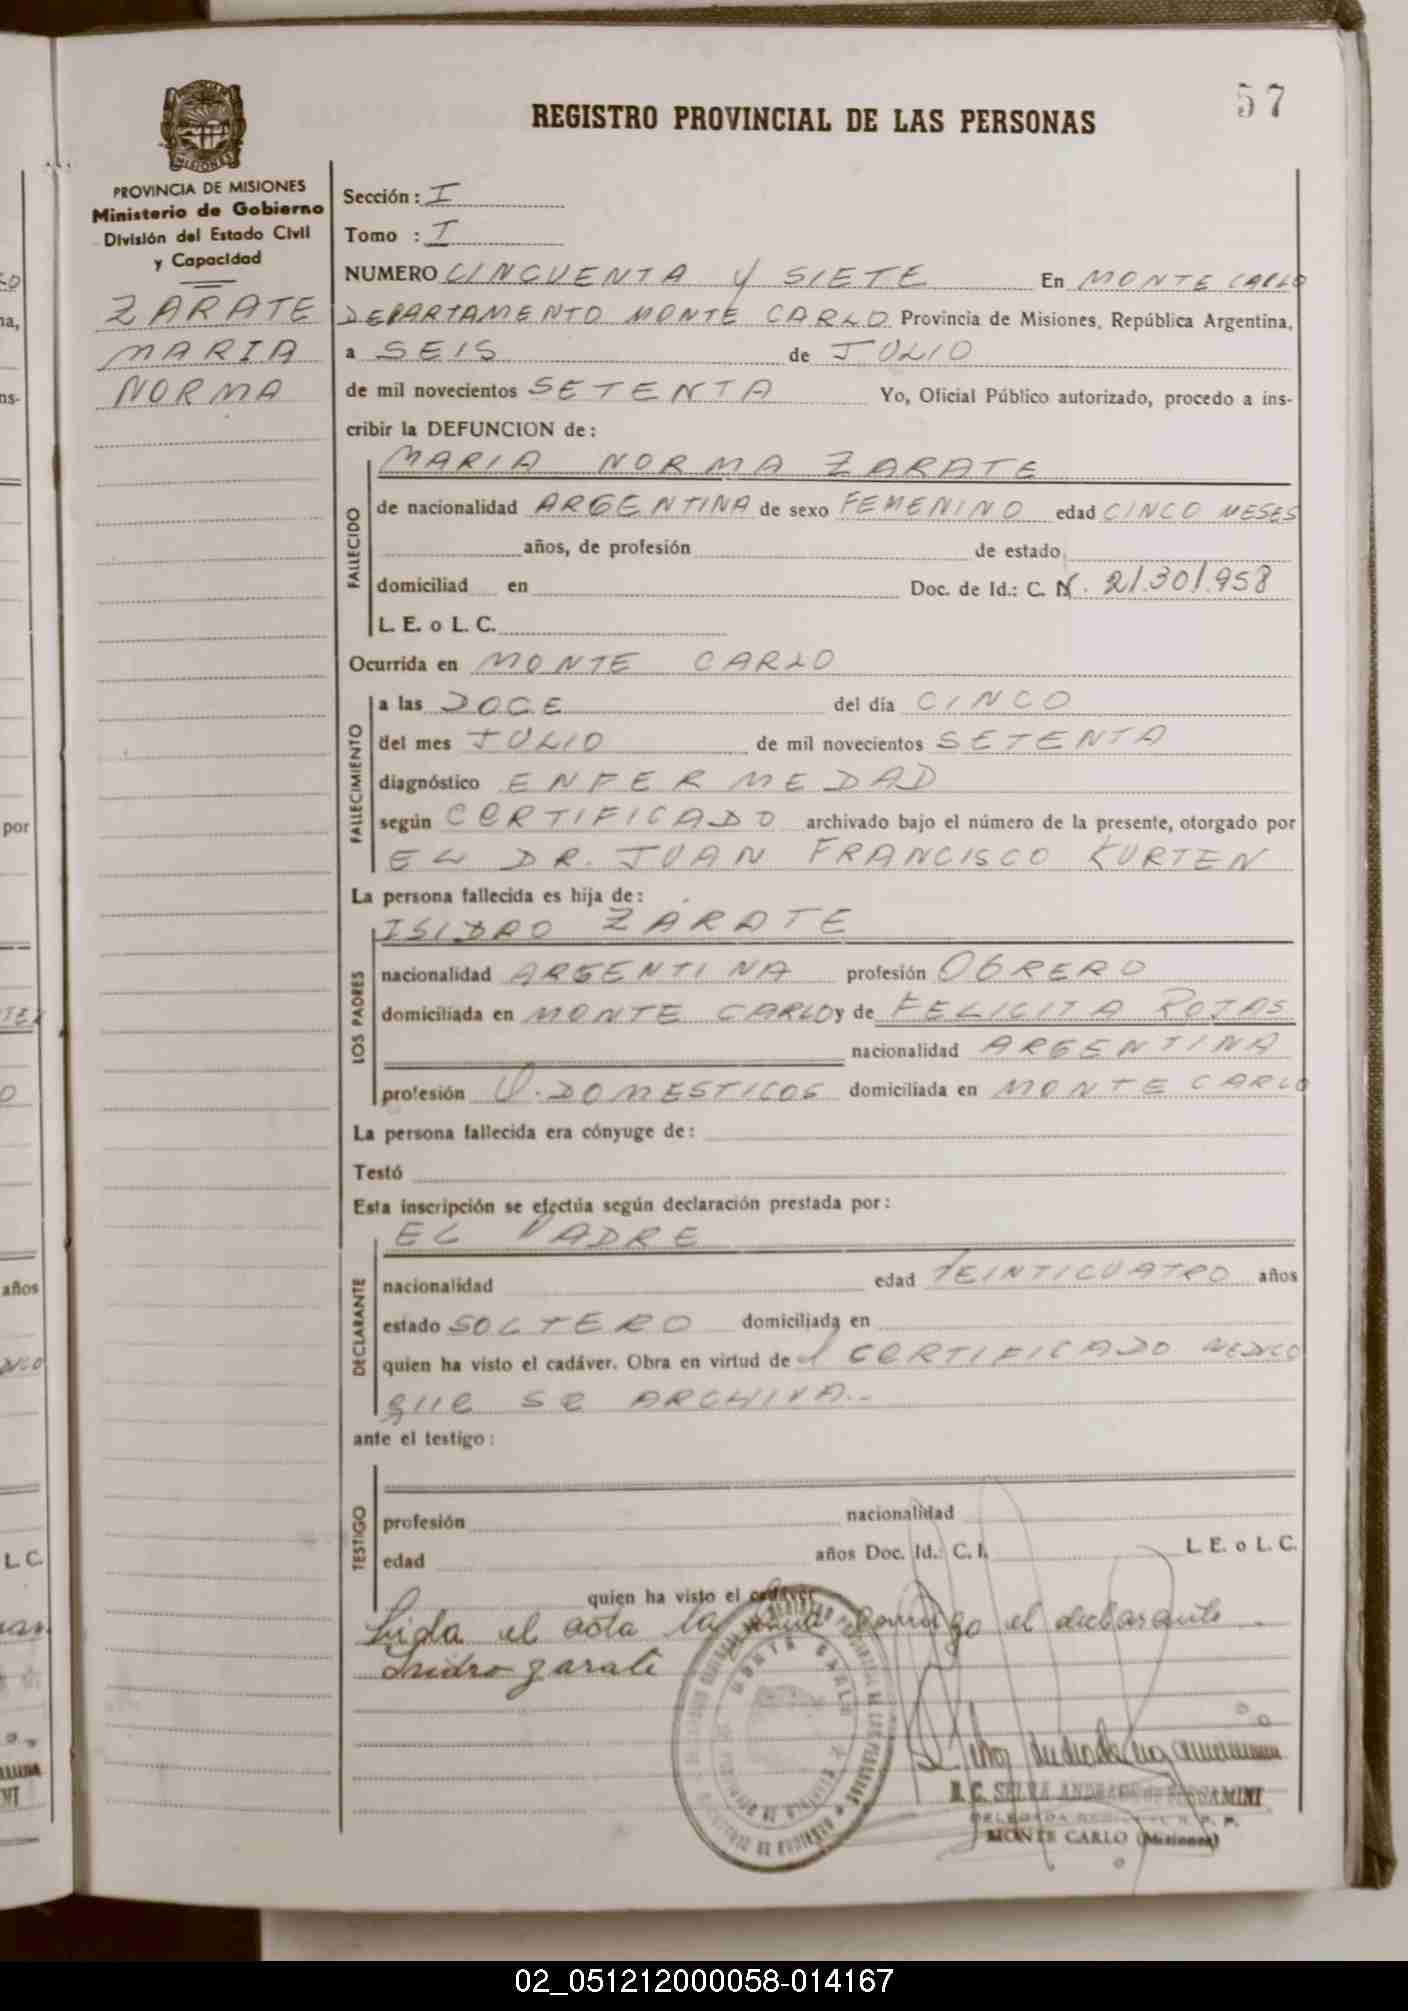 57
REGISTRO PROVINCIAL DE LAS PERSONAS
MISIONES
PROVINCIA DE MISIONES
Ministerio de Gobierno
División del Estado Civil
y Capacidad
ZARATE
MARIA
NORMA
Sección: I
Tomo : I
NUMERO CINCUENTA Y SIETE En MONTE CARLO
DEPARTAMENTO MONTE CARLO Provincia de Misiones, República Argentina,
a SEIS de JULIO
de mil novecientos SETENTA Yo, Oficial Público autorizado, procedo a ins-
cribir la DEFUNCION de:
FALLECIDO
MARIA NORMA ZARATE
de nacionalidad ARGENTINA de sexo FEMENINO edad CINCO MESES
años, de profesión de estado
domiciliad en Doc. de Id.: C. N. 21.301.958
L. E. o L. C.
Ocurrida en MONTE CARLO
FALLECIMIENTO
a las DOCE del día CINCO
del mes JULIO de mil novecientos SETENTA
diagnóstico ENFERMEDAD
según CERTIFICADO archivado bajo el número de la presente, otorgado por
EL DR. JUAN FRANCISCO KURTEN
La persona fallecida es hija de:
LOS PADRES
ISIDRO ZARATE
nacionalidad ARGENTINA profesión OBRERO
domiciliada en MONTE CARLO y de FELICITA ROJAS
nacionalidad ARGENTINA
profesión Q. DOMESTICOS domiciliada en MONTE CARLO
La persona fallecida era cónyuge de:
Testó
Esta inscripción se efectúa según declaración prestada por:
DECLARANTE
EL PADRE
nacionalidad edad VEINTICUATRO años
estado SOLTERO domiciliada en
quien ha visto el cadáver. Obra en virtud de el CERTIFICADO MEDICO
QUE SE ARCHIVA.-
ante el testigo:
TESTIGO
profesión nacionalidad
edad años Doc. Id.: C. I. L. E. o L. C.
quien ha visto el cadáver
Leida el acta la conmigo el declarante
Isidro Zarate
MONTE CARLO
R. C. SELVA ANDRADE de
DELEGADA
MONTE CARLO (Misiones)
02_051212000058-014167